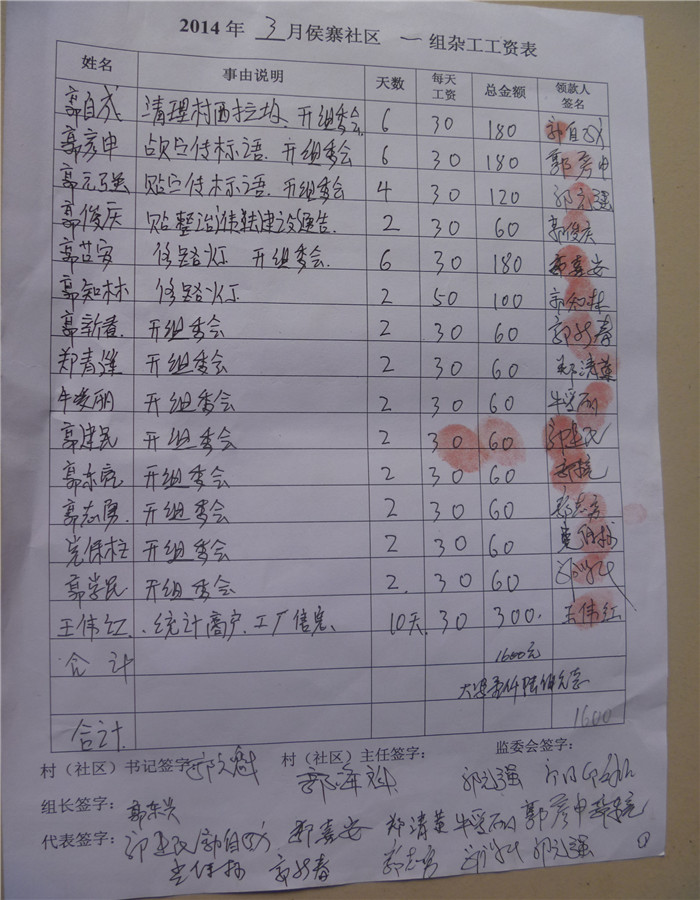 2014 年 3 月侯寨社区 一 组杂工工资表
姓名 事由说明 天数 每天工资 总金额 领款人签名
郭自成 清理村西垃圾、开组委会 6 30 180 郭自成
郭彦申 贴宣传标语、开组委会 6 30 180 郭彦申
郭元强 贴宣传标语、开组委会 4 30 120 郭元强
郭俊庆 贴整治违法建设通告 2 30 60 郭俊庆
修路灯 开组委会 6 30 180
郭知林 修路灯 2 50 100 郭知林
郭新春 开组委会 2 30 60 郭新春
郑青莲 开组委会 2 30 60
开组委会 2 30 60
郭建民 开组委会 2 30 60 郭建民
郭东亮 开组委会 2 30 60
郭志勇 开组委会 2 30 60 郭志勇
开组委会 2 30 60
郭学民 开组委会 2 30 60
王伟红 统计商户、工厂信息、 10天 30 300 王伟红
合计 1600元
大写壹仟陆佰元整
合计 1600
村（社区）书记签字： 村（社区）主任签字： 监委会签字：
郭元强
组长签字：郭东兴
代表签字：郭建民 郭自成 郭彦申
郭新春 郭志勇 郭元强